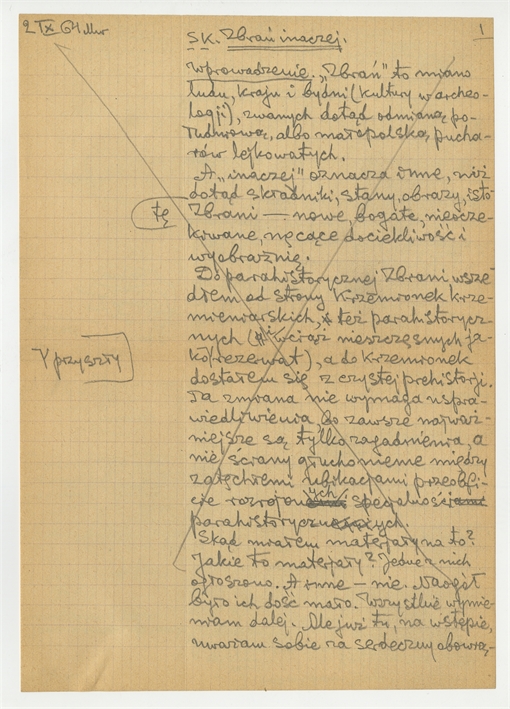 2 IX 64
1
SK. Zbrań inaczej.
Wprowadzenie. „Zbrań" to miano
ludu, kraju i bydni (kultury w archeo-
logji), zwanych dotąd odmianą po-
łudniową, albo małopolską, pucha-
rów lejkowatych.
A „inaczej" oznacza inne, niż
dotąd składniki, stany, obrazy, isto
tę
Zbrani — nowe, bogate, nieocze-
kiwane, nęcące dociekliwość i
wyobraźnię.
Do parahistorycznej Zbrani wsze-
dłem od strony Krzemionek krze-
mieniarskich, też parahistorycz-
nych (i wciąż nieszczęsnych ja-
ko rezerwat), a do Krzemionek
Y przyszły
dostałem się z czystej prehistorji.
Ta zmiana nie wymaga uspra-
wiedliwienia, bo zawsze najważ-
niejsze są tylko zagadnienia, a
nie ściany głuchonieme między
zatęchłemi ubikacjami przeobfi-
cie rozrojonych specjalności
parahistorycznych.
Skąd miałem materjały na to?
Jakie to materjały? Jedne z nich
ogłoszono. A inne — nie. Naogół
było ich dość mało. Wszystkie wymie-
niam dalej. Ale już tu, na wstępie,
uważam sobie za serdeczny obowią-